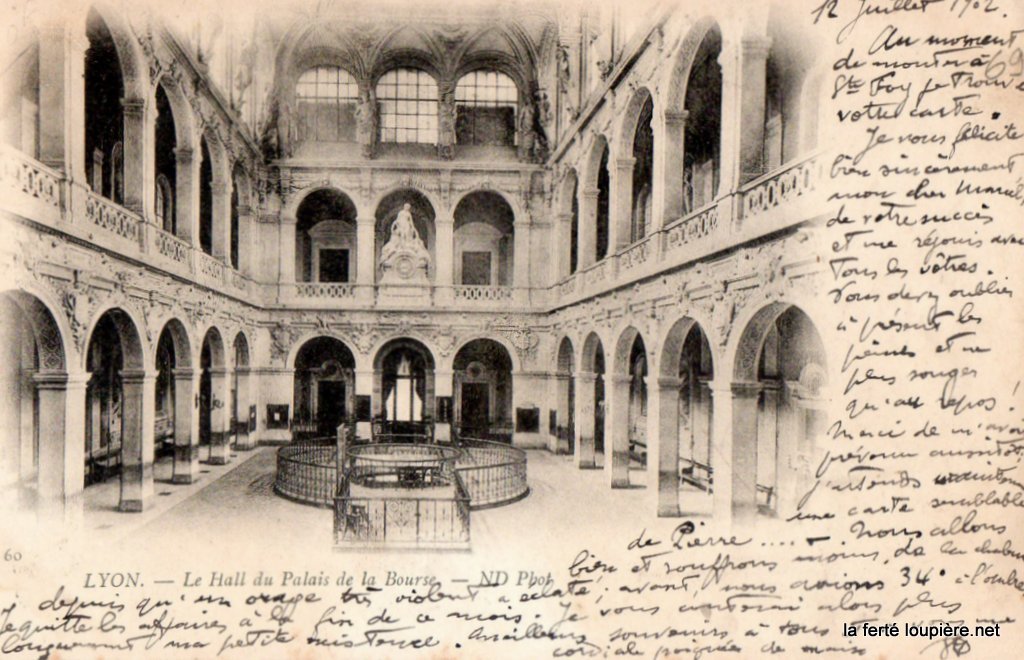 12 Juillet 1902.
Au moment
de monter à
Ste Foy je trouve
votre carte.
Je vous félicite
bien sincèrement
mon cher Marcel
de votre succès
et me réjouis avec
tous les vôtres.
Vous devez oublier
à présent les
peines et ne
plus songer
qu'au repos.
Merci de m'avoir
prévenu aussitôt.
J'attends maintenant
une carte semblable
de Pierre .... Nous allons
bien et souffrons moins de la chaleur
depuis qu'un orage très violent a éclaté; avant, nous avions 34° à l'ombre
Je quitte les affaires à la fin de ce mois. Je vous conterai alors plus
longuement ma petite existence. Meilleurs souvenirs à tous
cordiale poignée de main
60
LYON. — Le Hall du Palais de la Bourse — ND Phot
69
la ferté loupière.net